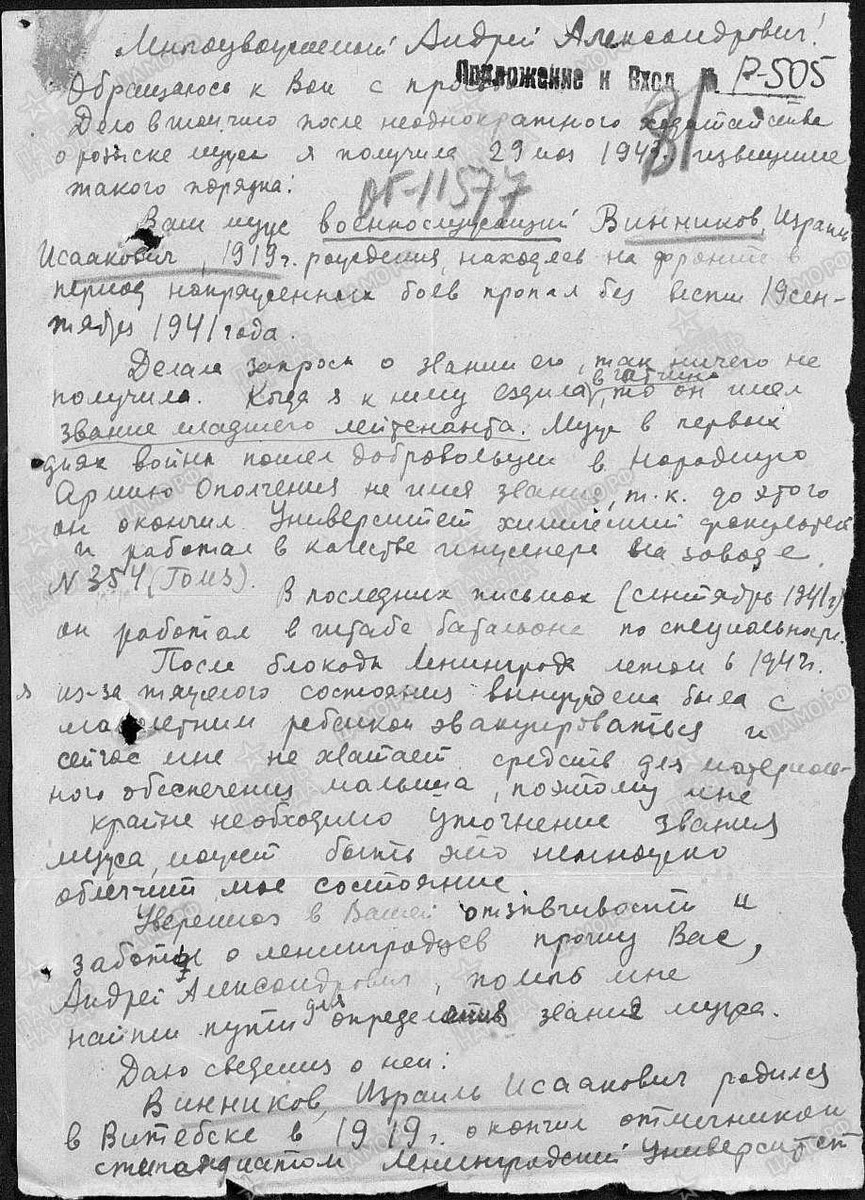 Многоуважаемый Андрей Александрович!
Приложение к Вход. № Р-505
Обращаюсь к Вам с
Дело в том что после неоднократного ходатайства
о розыске мужа я получила 29 194 извещение
такого порядка:
ВГ-11577
81
Ваш муж военнослужащий Винников, Израиль
Исаакович, 1919 г. рождения, находясь на фронте в
период напряженных боев пропал без вести 19 сен-
тября 1941 года.
Делала запрос о звании его, так ничего не
получила. Когда я к нему ездила в Гатчино, то он имел
звание младшего лейтенанта. Муж в первых
днях войны пошел добровольцем в Народную
Армию Ополчения не имея звания, т.к. до этого
он окончил Университет химический факультет
и работал в качестве инженера на заводе
N 354 (Гомз).
В последних письмах (сентябрь 1941 г)
он работал в штабе батальона по специальности.
После блокады Ленинграда летом в 194 г.
я из-за тяжелого состояния вынуждена была с
малолетним ребенком эвакуироваться и
сейчас мне не хватает средств для материаль-
ного обеспечения малыша, поэтому мне
крайне необходимо уточнение звания
мужа, может быть это немножко
облегчит мое состояние
Уверенная в Вашей отзывчивости и
заботы о ленинградцев прошу Вас,
Андрей Александрович, помочь мне
найти пути для определения звания мужа.
Даю сведения о нем:
Винников, Израиль Исаакович родился
в Витебске в 1919 г. окончил отличником
стипендиатом Ленинградский Университет